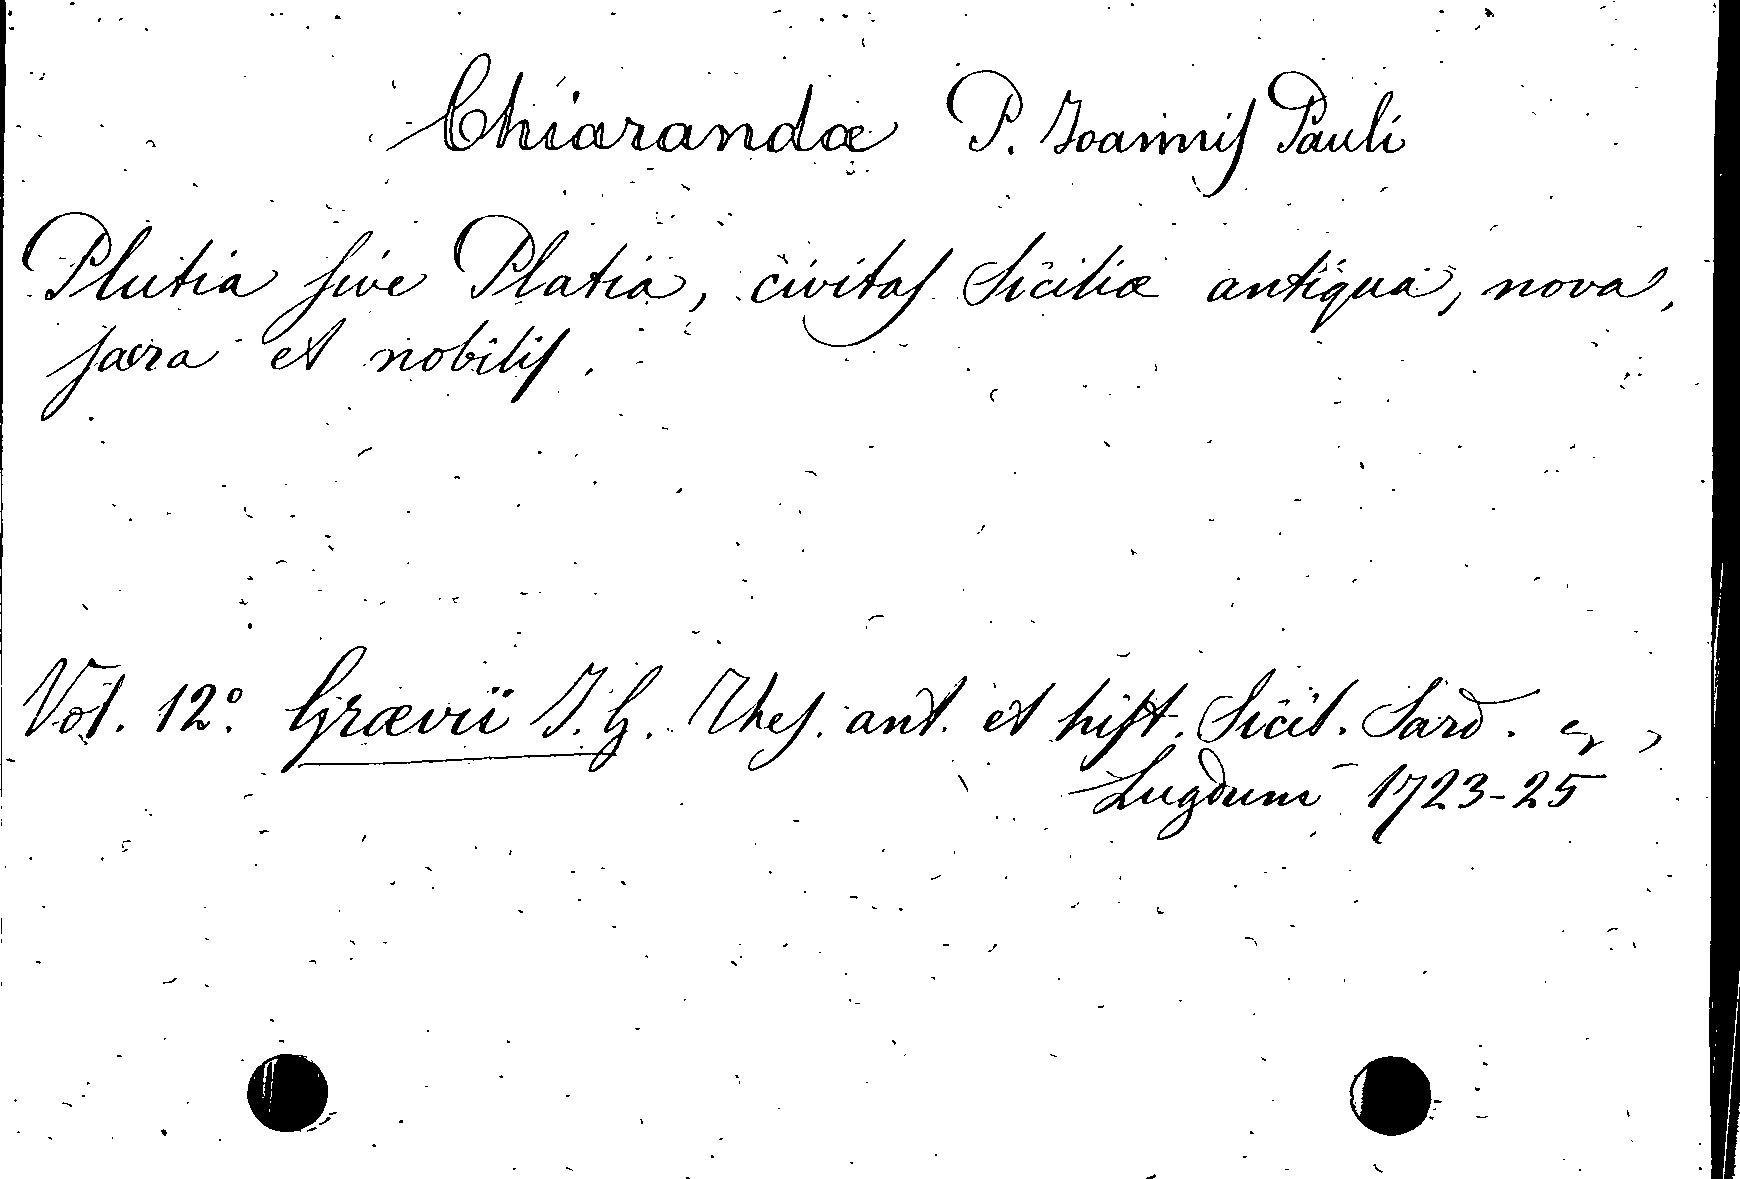 Chiarandæ P. Joannis Pauli
Plutia sive Platia, civitas Siciliæ antiqua, nova,
sacra et nobilis.
Vol. 12º. Grævii J. G. Thes. ant. et hist. Sicil. Sard.
Lugduni 1723-25